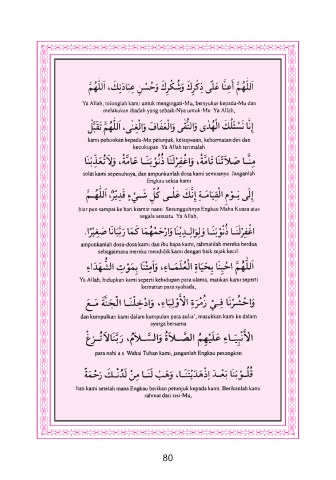 اَللّٰهُمَّ أَعِنَّا عَلَى ذِكْرِكَ وَشُكْرِكَ وَحُسْنِ عِبَادَتِكَ، اَللّٰهُمَّ
Ya Allah, tolonglah kami untuk mengingati-Mu, bersyukur kepada-Mu dan
melakukan ibadah yang sebaik-Nya untuk-Mu. Ya Allah,
إِنَّا نَسْئَلُكَ الْهُدٰى وَالتُّقٰى وَالْعَفَافَ وَالْغِنٰى، اَللّٰهُمَّ تَقَبَّلْ
kami pohonkan kepada-Mu petunjuk, ketaqwaan, kehormatan diri dan
kecukupan. Ya Allah terimalah
مِنَّا صَلَاتَنَا تَامَّةً، وَاغْفِرْلَنَا ذُنُوْبَنَا عَامَّةً، وَلَاتُعَذِّبْنَا
solat kami sepenuhnya, dan ampunkanlah dosa kami semuanya. Janganlah
Engkau seksa kami
إِلَى يَوْمِ الْقِيَامَةِ إِنَّكَ عَلَى كُلِّ شَيْءٍ قَدِيْرٌ، اَللّٰهُمَّ
biar pun sampai ke hari kiamat nanti. Sesungguhnya Engkau Maha Kuasa atas
segala sesuatu. Ya Allah,
اغْفِرْلَنَا ذُنُوْبَنَا وَلِوَالِدِيْنَا وَارْحَمْهُمَا كَمَا رَبَّيَانَا صَغِيْرًا.
ampunkanlah dosa-dosa kami dan ibu bapa kami, rahmatilah mereka berdua
sebagaimana mereka mendidik kami dengan baik sejak kecil.
اَللّٰهُمَّ احْيِنَا بِحَيَاةِ الْعُلَمَاءِ، وَأَمِتْنَا بِمَوْتِ الشُّهَدَاءِ
Ya Allah, hidupkan kami seperti kehidupan para ulama, matikan kami seperti
kematian para syuhada,
وَاحْشُرْنَا فِيْ زُمْرَةِ الْأَوْلِيَاءِ، وَادْخِلْنَا الْجَنَّةَ مَعَ
dan kumpulkan kami dalam kumpulan para aulia', masukkan kami ke dalam
syurga bersama
الْأَنْبِيَاءِ عَلَيْهِمُ الصَّلَاةُ وَالسَّلَامُ، رَبَّنَالَاتُزِغْ
para nabi a.s. Wahai Tuhan kami, janganlah Engkau pesongkan
قُلُوْبَنَا بَعْدَ إِذْهَدَيْتَنَا، وَهَبْ لَنَا مِنْ لَّدُنْكَ رَحْمَةً
hati kami setelah mana Engkau berikan petunjuk kepada kami. Berikanlah kami
rahmat dari sisi-Mu,
80